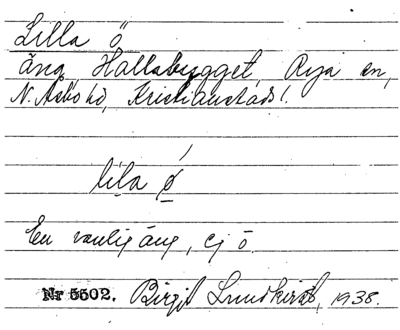 Lilla Ö
äng, Hallabygget, Rya sn,
N. Åsbo hd, Kristianstads l.
lila ǿ
En vanlig äng, ej ö
Nr 5502. Birgit Lundkvist, 1938.